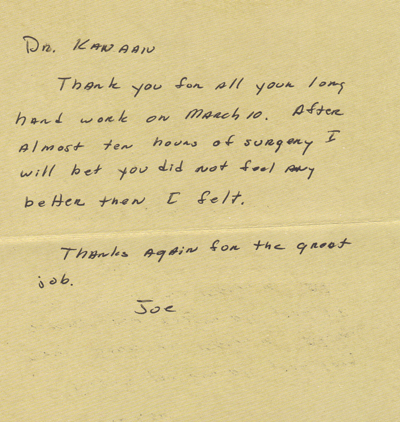 Dr. Kanaan
Thank you for all your long
hard work on March 10. After
almost ten hours of surgery I
will bet you did not feel any
better then I felt.
Thanks again for the great
job.
Joe